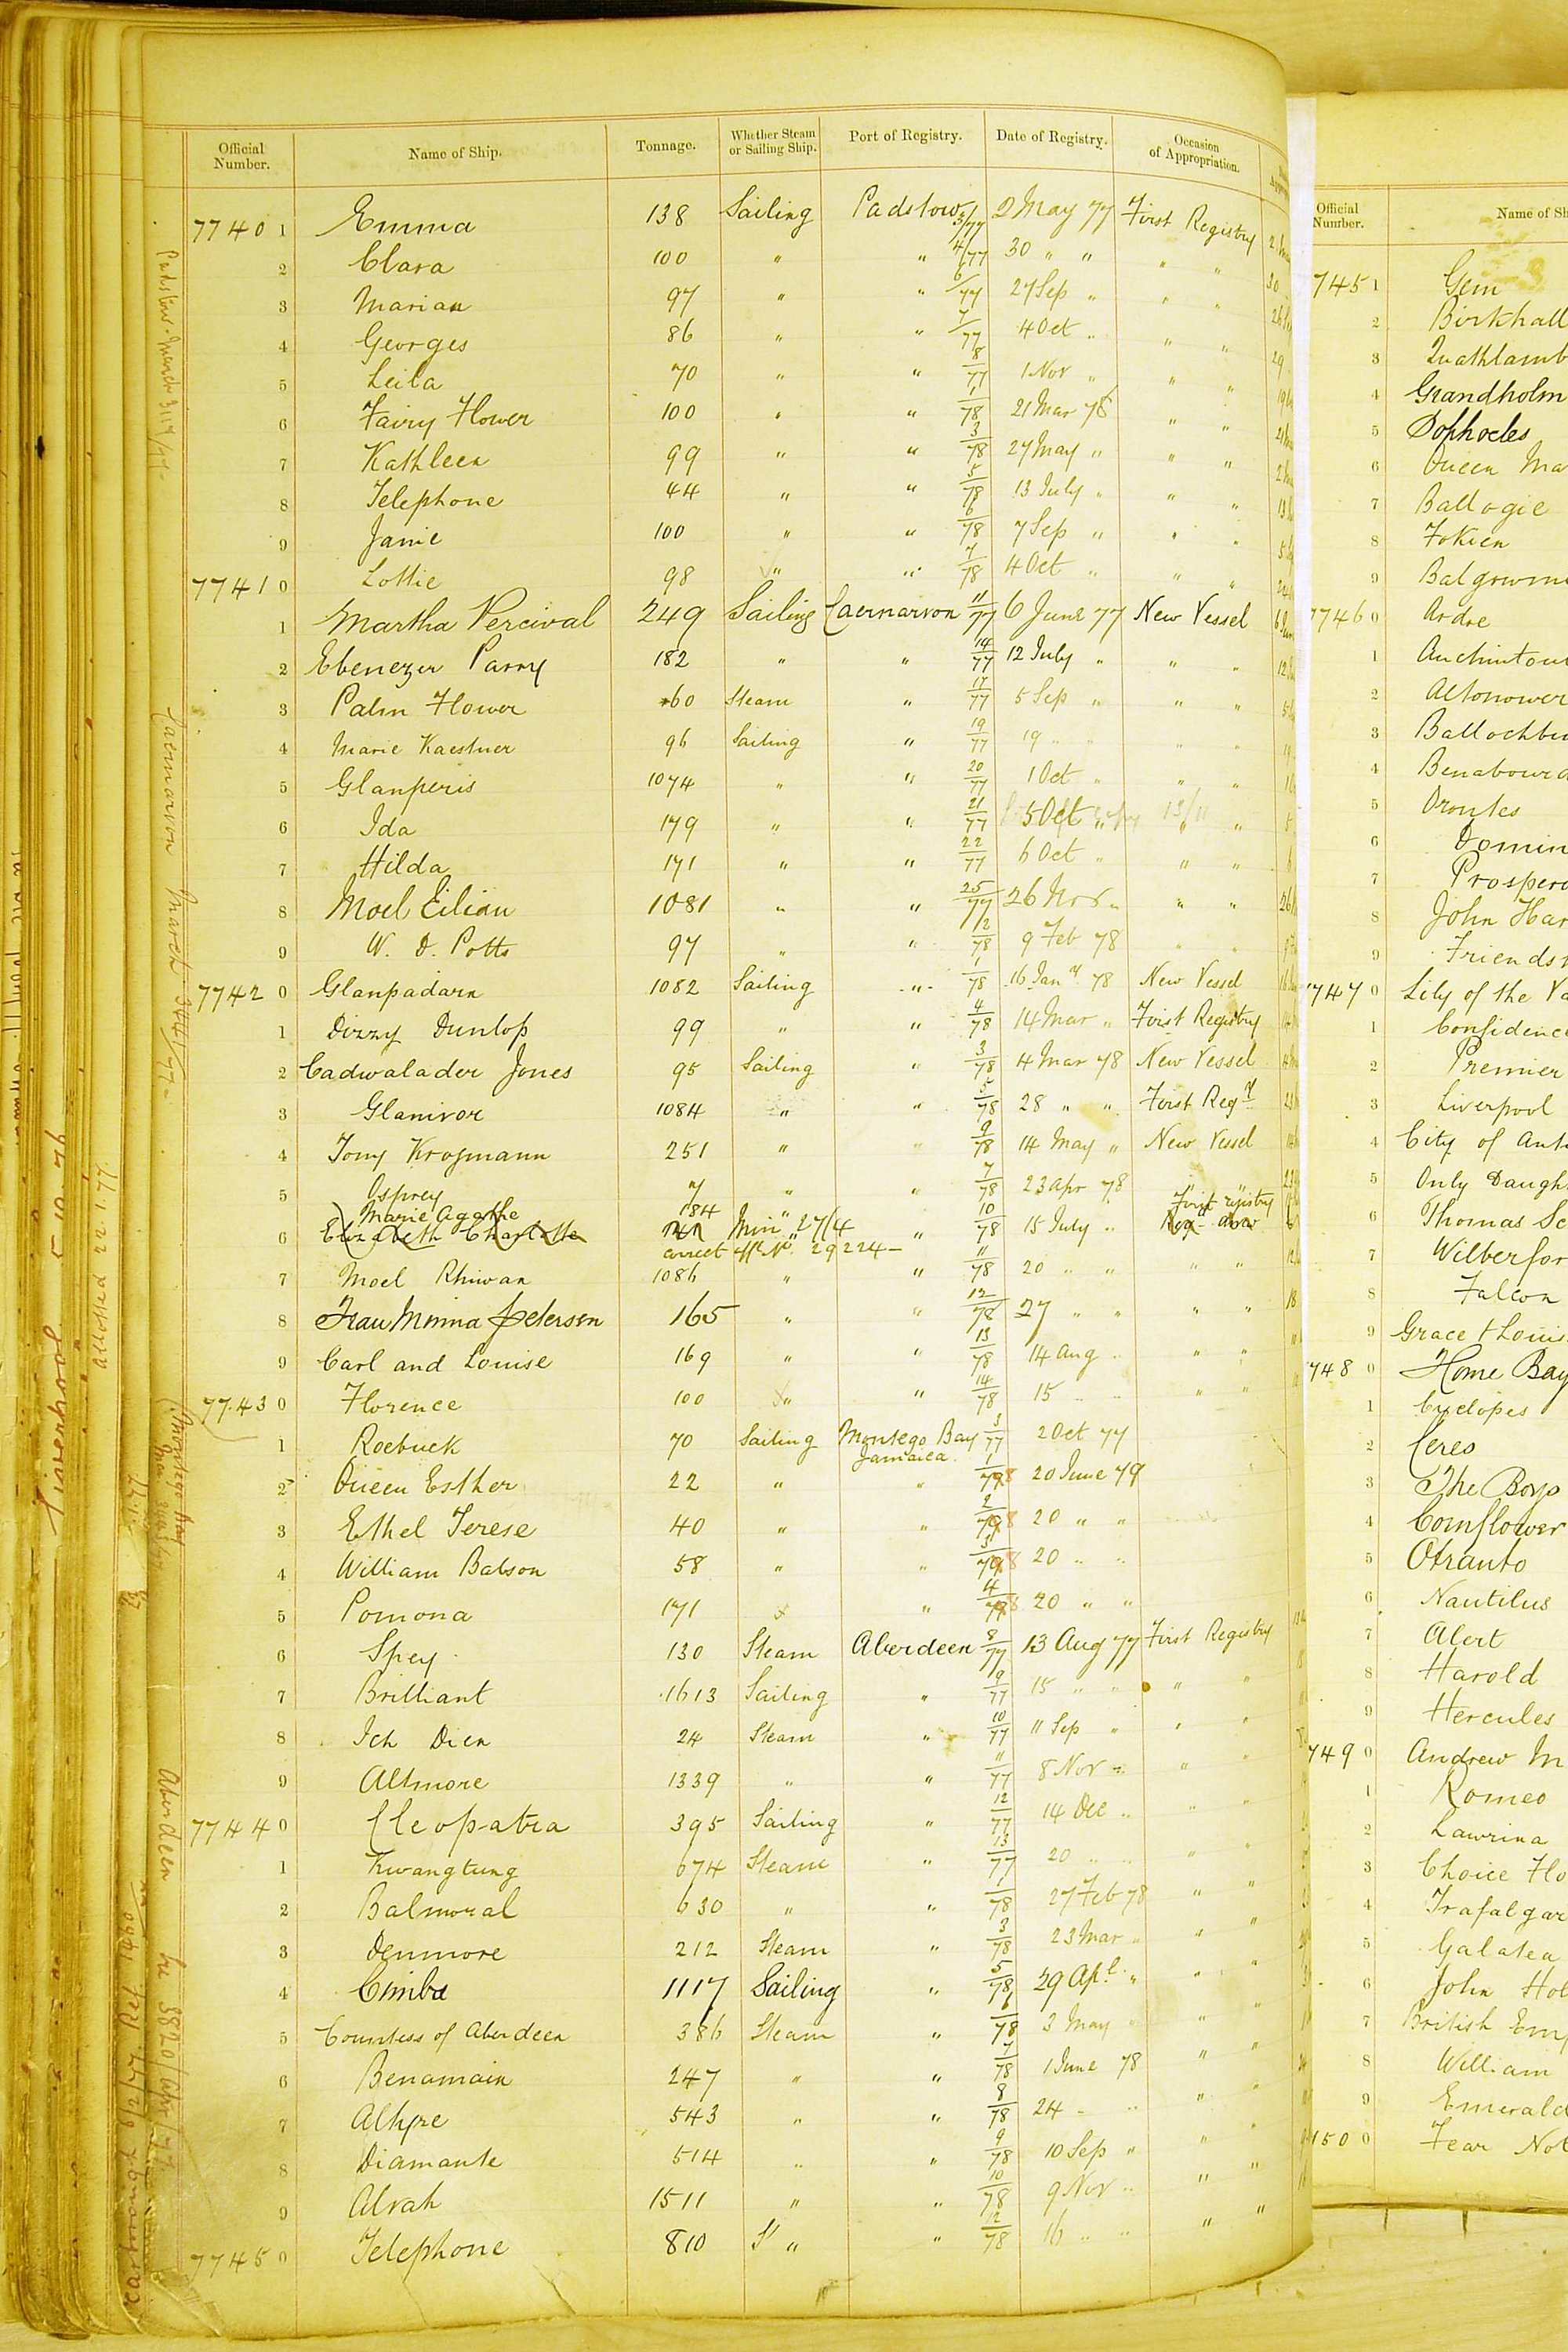 Official Number. Name of Ship. Tonnage. Whether Steam or Sailing Ship. Port of Registry. Date of Registry. Occasion of Appropriation.
77401 Emma 138 Sailing Padstow 3/77 2 May 77 First Registry
2 Clara 100 " " 4/77 30 " " " "
3 Marian 97 " " 6/77 27 Sep " " "
4 Georges 86 " " 7/77 4 Oct " " "
5 Leila 70 " " 8/77 1 Nov " " "
6 Fairy Flower 100 " " 1/78 21 Mar 78 " "
7 Kathleen 99 " " 3/78 27 May " " "
8 Telephone 44 " " 5/78 13 July " " "
9 Janie 100 " " 6/78 7 Sep " " "
77410 Lottie 98 " " 7/78 4 Oct " " "
1 Martha Percival 249 Sailing Caernarvon 11/77 6 June 77 New Vessel
2 Ebenezer Parry 182 " " 14/77 12 July " " "
3 Palm Flower 60 Steam " 17/77 5 Sep " " "
4 Marie Kaestner 96 Sailing " 19/77 19 " " " "
5 Glanperis 1074 " " 20/77 1 Oct " " "
6 Ida 179 " " 21/77 5 Oct " " "
7 Hilda 171 " " 22/77 6 Oct " " "
8 Moel Eilian 1081 " " 25/77 26 Nov " " "
9 W. D. Potts 97 " " 2/78 9 Feb 78 " "
77420 Glanpadarn 1082 Sailing " 1/78 16 Jany 78 New Vessel
1 Dizzy Dunlop 99 " " 4/78 14 Mar " First Registry
2 Cadwalader Jones 95 Sailing " 3/78 4 Mar 78 New Vessel
3 Glanivor 1084 " " 5/78 28 " " First Regy
4 Tony Krogmann 251 " " 9/78 14 May " New Vessel
5 Osprey 7 " " 7/78 23 Apr 78 " "
Marie Agathe 184 " First registry
6 Elizabeth Charlotte Min 27/4 " 10/78 15 July " Reg anew
correct Off No. 29224 -
7 Moel Rhiwan 1086 " " 11/78 20 " " " "
8 Frau Minna Petersen 165 " " 12/78 27 " " " "
9 Carl and Louise 169 " " 13/78 14 Aug " " "
77430 Florence 100 " " 14/78 15 " " " "
1 Roebuck 70 Sailing Montego Bay Jamaica 3/77 2 Oct 77
2 Queen Esther 22 " " 1/78 20 June 79
3 Ethel Terese 40 " " 2/78 20 " "
4 William Babson 58 " " 3/78 20 " "
5 Pomona 171 " " 4/78 20 " "
6 Spey 130 Steam Aberdeen 8/77 13 Aug 77 First Registry
7 Brilliant 1613 Sailing " 9/77 15 " " " "
8 Ich Dien 24 Steam " 10/77 11 Sep " " "
9 Altmore 1339 " " 11/77 8 Nov " " "
77440 Cleopatra 395 Sailing " 12/77 14 Dec " " "
1 Kwangtung 674 Steam " 13/77 20 " " " "
2 Balmoral 630 " " 1/78 27 Feb 78 " "
3 Denmore 212 Steam " 3/78 23 Mar " " "
4 Cimba 1117 Sailing " 5/78 29 Apl " " "
5 Countess of Aberdeen 386 Steam " 6/78 3 May " " "
6 Benamain 247 " " 7/78 1 June 78 " "
7 Alhpre 543 " " 8/78 24 " " " "
8 Diamante 514 " " 9/78 10 Sep " " "
9 Alvah 1511 " " 10/78 9 Nov " " "
77450 Telephone 810 S " " 12/78 16 " " " "
Liverpool 5-10-76
allotted 22.1.77
Caernarvon March
Montego Bay
Aberdeen
Official Number. Name of Sh
7451 Gem
2 Birkhall
3 Quathlamb
4 Grandholm
5 Sophocles
6 Queen Ma
7 Ballogie
8 Fokien
9 Balgowni
7460 Ardoe
1 Auchintou
2 Altonower
3 Ballochbu
4 Benabourd
5 Orontes
6 Domin
7 Prospero
8 John Har
9 Friends
7470 Lily of the Va
1 Confidence
2 Premier
3 Liverpool
4 City of Ant
5 Only Daugh
6 Thomas Sc
7 Wilberfor
8 Falcon
9 Grace & Louis
7480 Home Bay
1 Cyclopes
2 Ceres
3 The Boys
4 Cornflower
5 Otranto
6 Nautilus
7 Alert
8 Harold
9 Hercules
7490 Andrew M
1 Romeo
2 Lawrina
3 Choice Flo
4 Trafalgar
5 Galatea
6 John Hol
7 British Emp
8 William
9 Emerald
1500 Fear Not